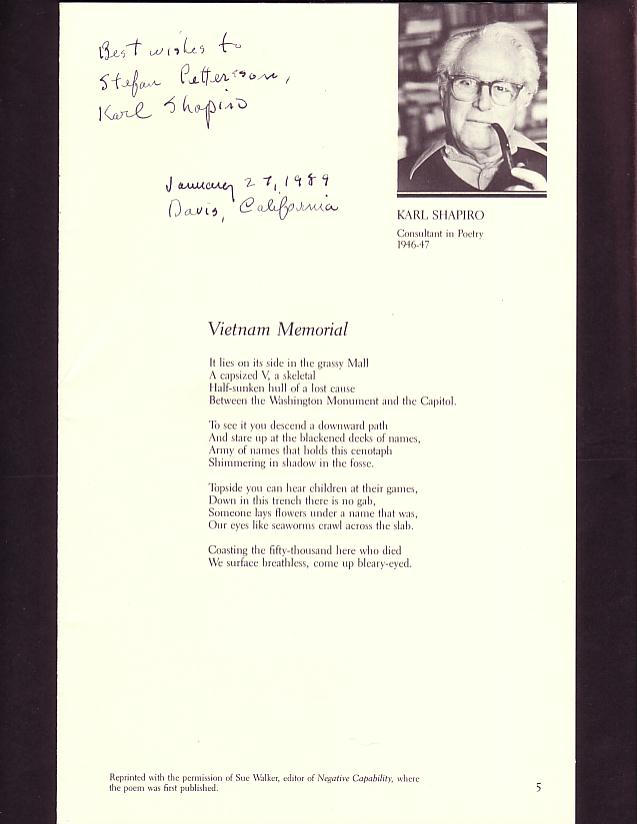 Best wishes to
Stefan Pettersson,
Karl Shapiro
January 27, 1989
Davis, California
KARL SHAPIRO
Consultant in Poetry
1946-47
Vietnam Memorial
It lies on its side in the grassy Mall
A capsized V, a skeletal
Half-sunken hull of a lost cause
Between the Washington Monument and the Capitol.
To see it you descend a downward path
And stare up at the blackened decks of names,
Army of names that holds this cenotaph
Shimmering in shadow in the fosse.
Topside you can hear children at their games,
Down in this trench there is no gab,
Someone lays flowers under a name that was,
Our eyes like seaworms crawl across the slab.
Coasting the fifty-thousand here who died
We surface breathless, come up bleary-eyed.
Reprinted with the permission of Sue Walker, editor of Negative Capability, where
the poem was first published.
5